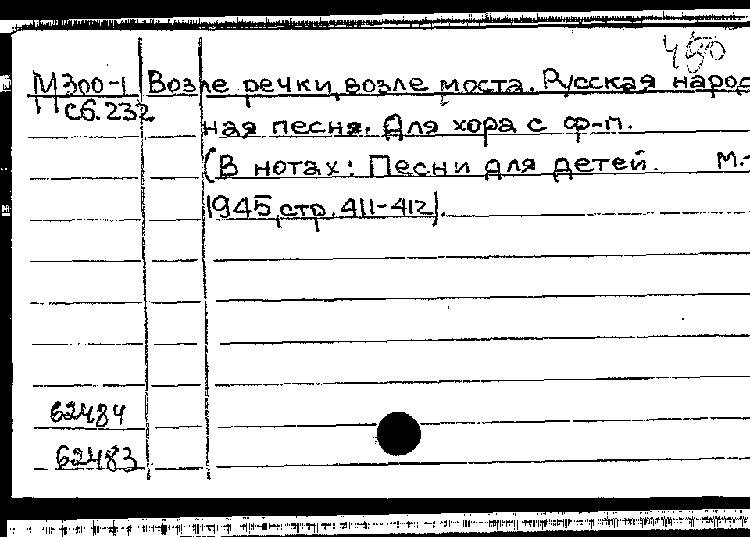 450
М300-1 Возле речки, возле моста. Русская народ
Сб.232
ная песня. Для хора с ф-п.
(В нотах: Песни для детей. М.-
1945, стр. 411-412).
62484
62483